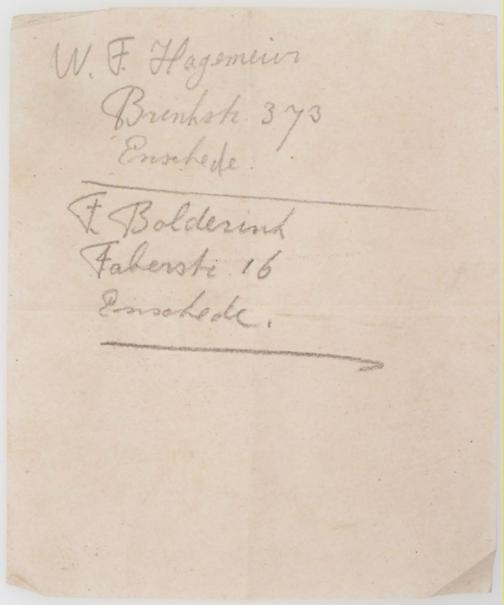 W. F. Hagemeier
Brinkstr. 373
Enschede.
F. Bolderink
Faberstr. 16
Enschede.